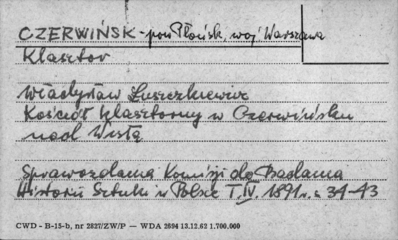 CZERWIŃSK - pow Płońsk, woj Warszawa
Klasztor
Władysław Łuszczkiewicz
Kościół klasztorny w Czerwińsku
nad Wisłą
Sprawozdania Komisji do Badania
Historii Sztuki w Polsce T. IV. 1891 r. s 34-43
CWD - B-15-b, nr 2827/ZW/P — WDA 2894 13.12.62 1.700.000